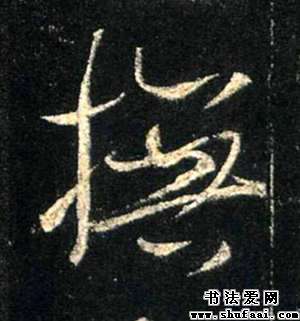 撫
书法爱网
www.shufaai.com